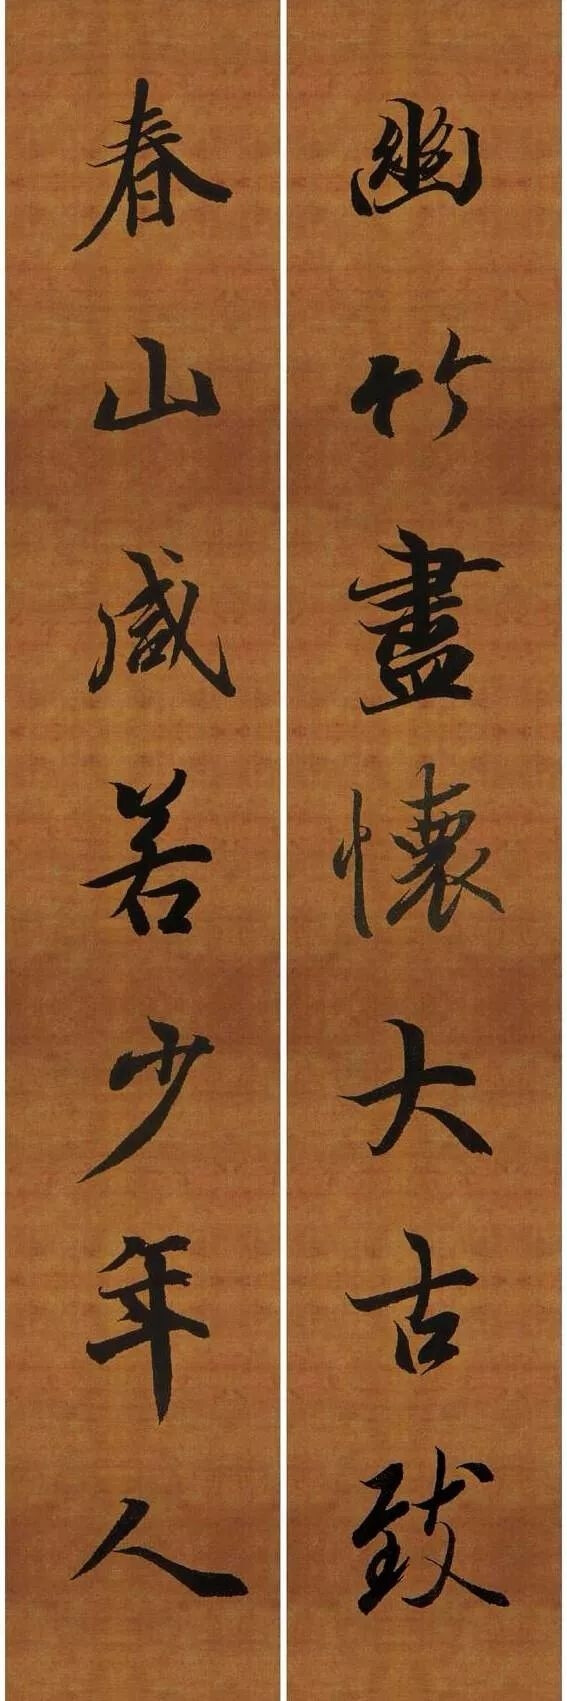 幽竹盡懷大古致
春山咸若少年人